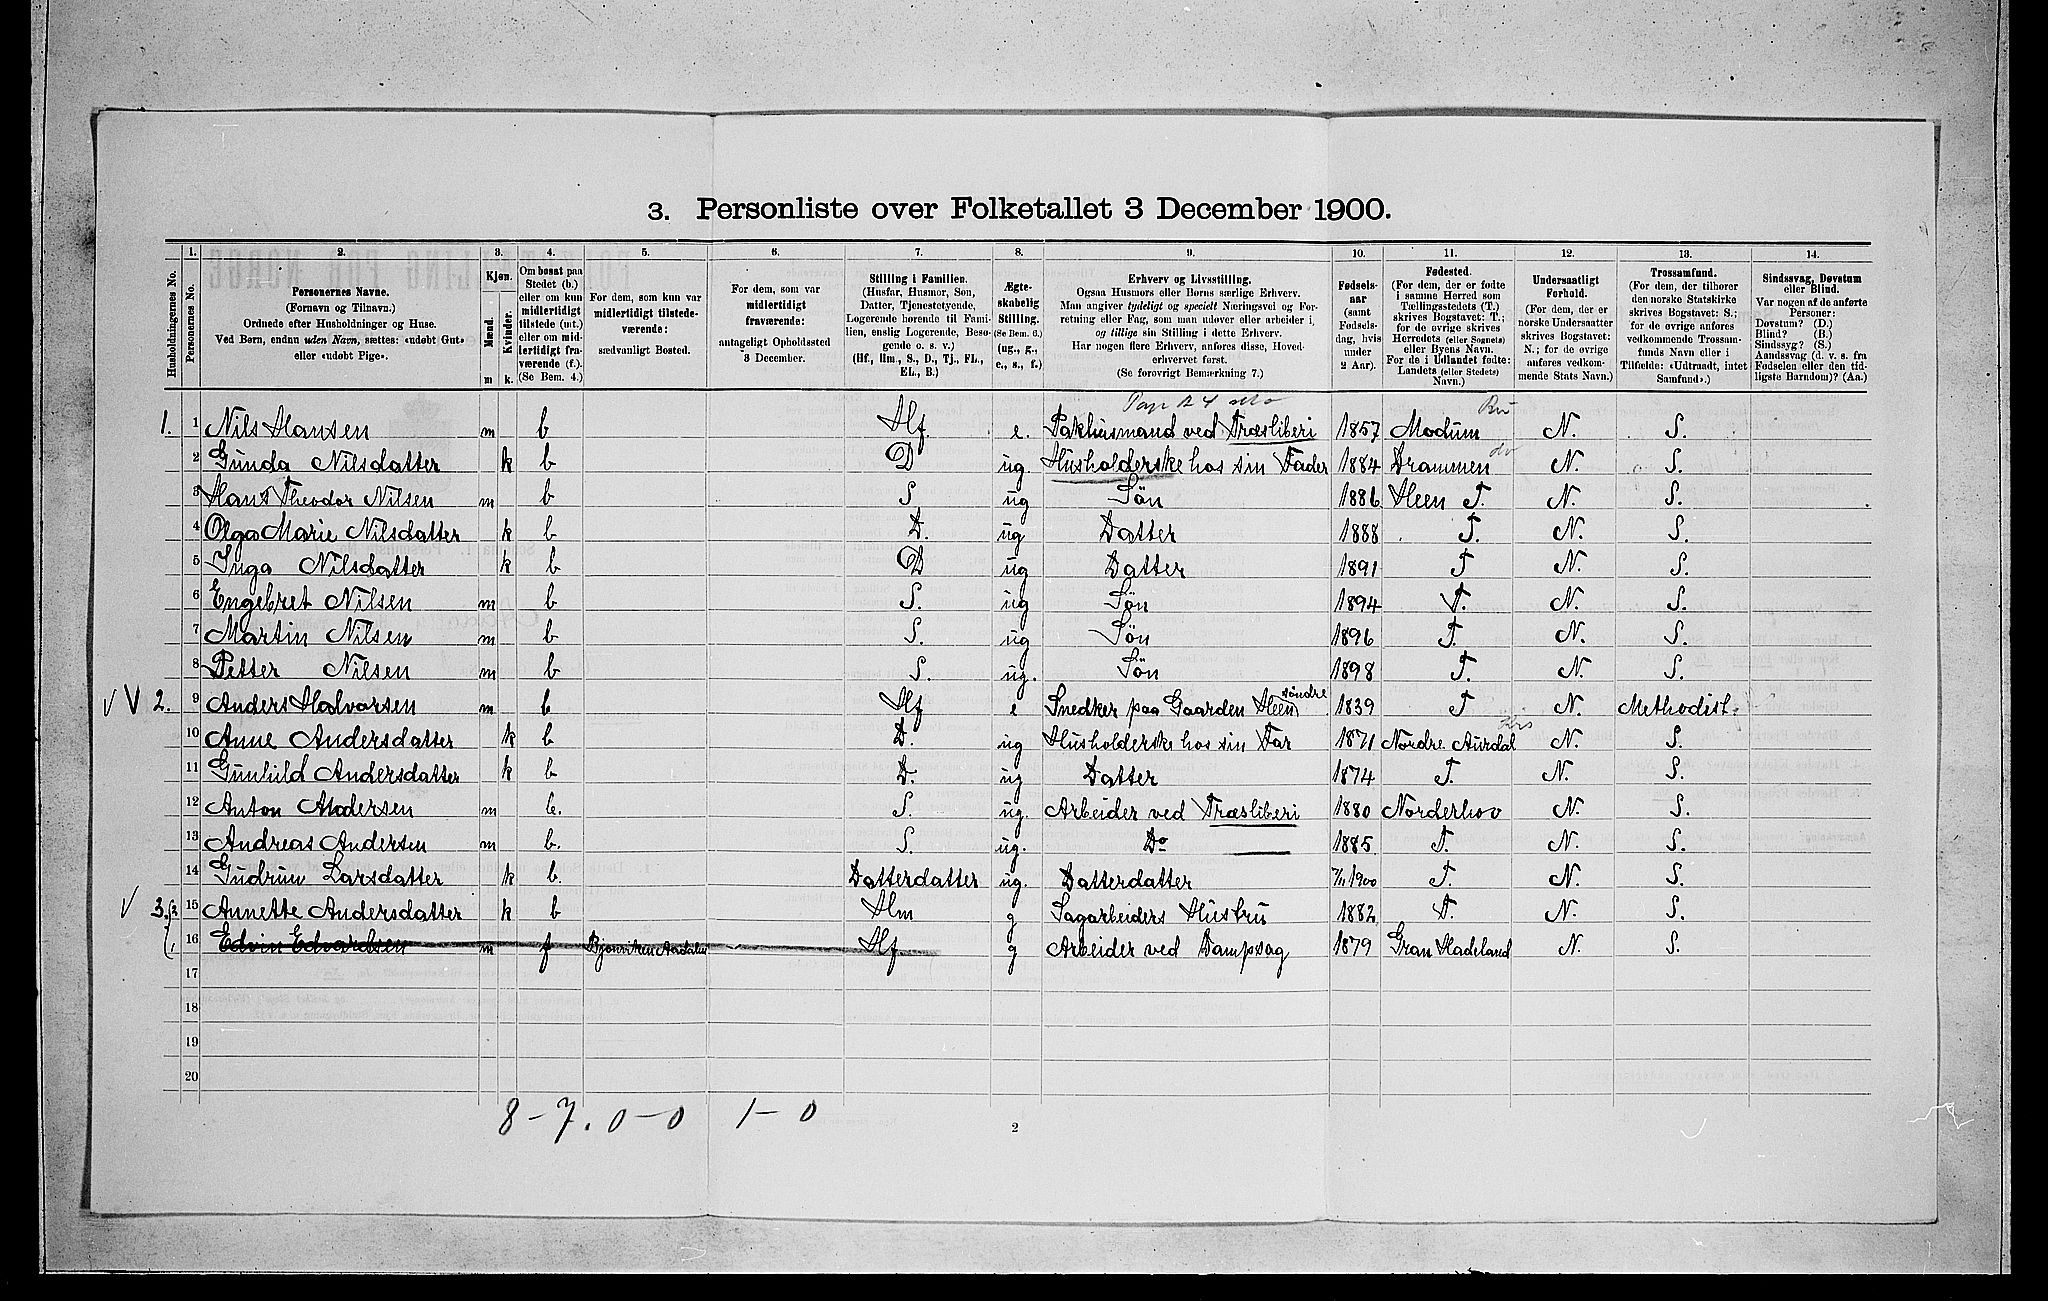 3. Personliste over Folketallet 3 December 1900.
1. 2. 3. 4. 5. 6. 7. 8. 9. 10. 11. 12. 13. 14.
Husholdningernes No.
Personernes No.
Personernes Navne.
(Fornavn og Tilnavn.)
Ordnede efter Husholdninger og Huse.
Ved Børn, endnu uden Navn, sættes: «udøbt Gut»
eller «udøbt Pige».
Kjøn.
Mænd.
Kvinder.
m k.
Om bosat paa
Stedet (b.)
eller om kun
midlertidigt
tilstede (mt.)
eller om mid-
lertidigt fra-
værende (f.).
(Se Bem. 4.)
For dem, som kun var
midlertidigt tilstede-
værende:
sædvanligt Bosted.
For dem, som var
midlertidigt
fraværende:
antageligt Opholdssted
3 December.
Stilling i Familien.
(Husfar, Husmor, Søn,
Datter, Tjenestetyende,
Logerende hørende til Fami-
lien, enslig Logerende, Besø-
gende o. s. v.)
(Hf, Hm, S., D., Tj., FL.,
EL., B.)
Ægte-
skabelig
Stilling.
(Se Bem. 6.)
(ug., g.,
e., s., f.)
Erhverv og Livsstilling.
Ogsaa Husmors eller Børns særlige Erhverv.
Man angiver tydeligt og specielt Næringsvei og For-
retning eller Fag, som man udøver eller arbeider i,
og tillige sin Stilling i dette Erhverv.
Har nogen flere Erhverv, anføres disse, Hoved-
erhvervet først.
(Se forøvrigt Bemærkning 7.)
Fødsels-
aar
(samt
Fødsels-
dag, hvis
under
2 Aar).
Fødested.
(For dem, der er fødte
i samme Herred som
Tællingsstedets (T.)
skrives Bogstavet: T.;
for de øvrige skrives
Herredets (eller Sognets)
eller Byens Navn.
For de i Udlandet fødte:
Landets (eller Stedets)
Navn.)
Undersaatligt
Forhold.
(For dem, der er
norske Undersaatter
skrives Bogstavet:
N.; for de øvrige
anføres vedkom-
mende Stats Navn.)
Trossamfund.
(For dem, der tilhører
den norske Statskirke
skrives Bogstavet: S.;
for de øvrige anføres
vedkommende Trossam-
funds Navn eller i
Tilfælde: «Udtraadt, intet
Samfund».)
Sindssvag, Døvstum
eller Blind.
Var nogen af de anførte
Personer:
Døvstum? (D.)
Blind? (B.)
Sindssyg? (S.)
Aandssvag (d. v. s. fra
Fødselen eller den tid-
ligste Barndom)? (Aa.)
1. 1 Nils Hansen m b Hf. e. Pakhusmand ved Træsliberi 1857 Modum N. S.
2 Gunda Nilsdatter k b D ug. Husholderske hos sin Fader 1884 Drammen N. S.
3 Hans Theodor Nilsen m b S ug Søn 1886 Heen T. N. S.
4 Olga Marie Nilsdatter k b D. ug Datter 1888 T. N. S.
5 Inga Nilsdatter k b D ug Datter 1891 T N. S.
6 Engebret Nilsen m b S. ug Søn 1894 T. N. S.
7 Martin Nilsen m b S. ug Søn 1896 T. N. S.
8 Petter Nilsen m b S. ug. Søn 1898 T. N. S.
2. 9 Anders Halvorsen m b Hf e Snedker paa Gaarden Heen søndre 1839 T N. Methodist.
10 Anne Andersdatter k b D. ug Husholderske hos sin Far 1871 Nordre Aurdal N. S.
11 Gunhild Andersdatter k b D. ug Datter 1874 T. N. S.
12 Anton Andersen m b. S. ug. Arbeider ved Træsliberi 1880 Norderhov N. S.
13 Andreas Andersen m b. S. ug. Do 1885 T. N. S.
14 Gudrun Larsdatter k b. Datterdatter ug. Datterdatter 7/11 1900 T. N. S.
3. 15 Annette Andersdatter k b Hm g Sagarbeiders Hustru 1882 T. N. S.
16 Edvin Edvardsen m f Hf. g Arbeider ved Dampsag 1879 Gran Hadeland N. S.
17
18
19
20
8 - 7. 0 - 0 1 - 0
2